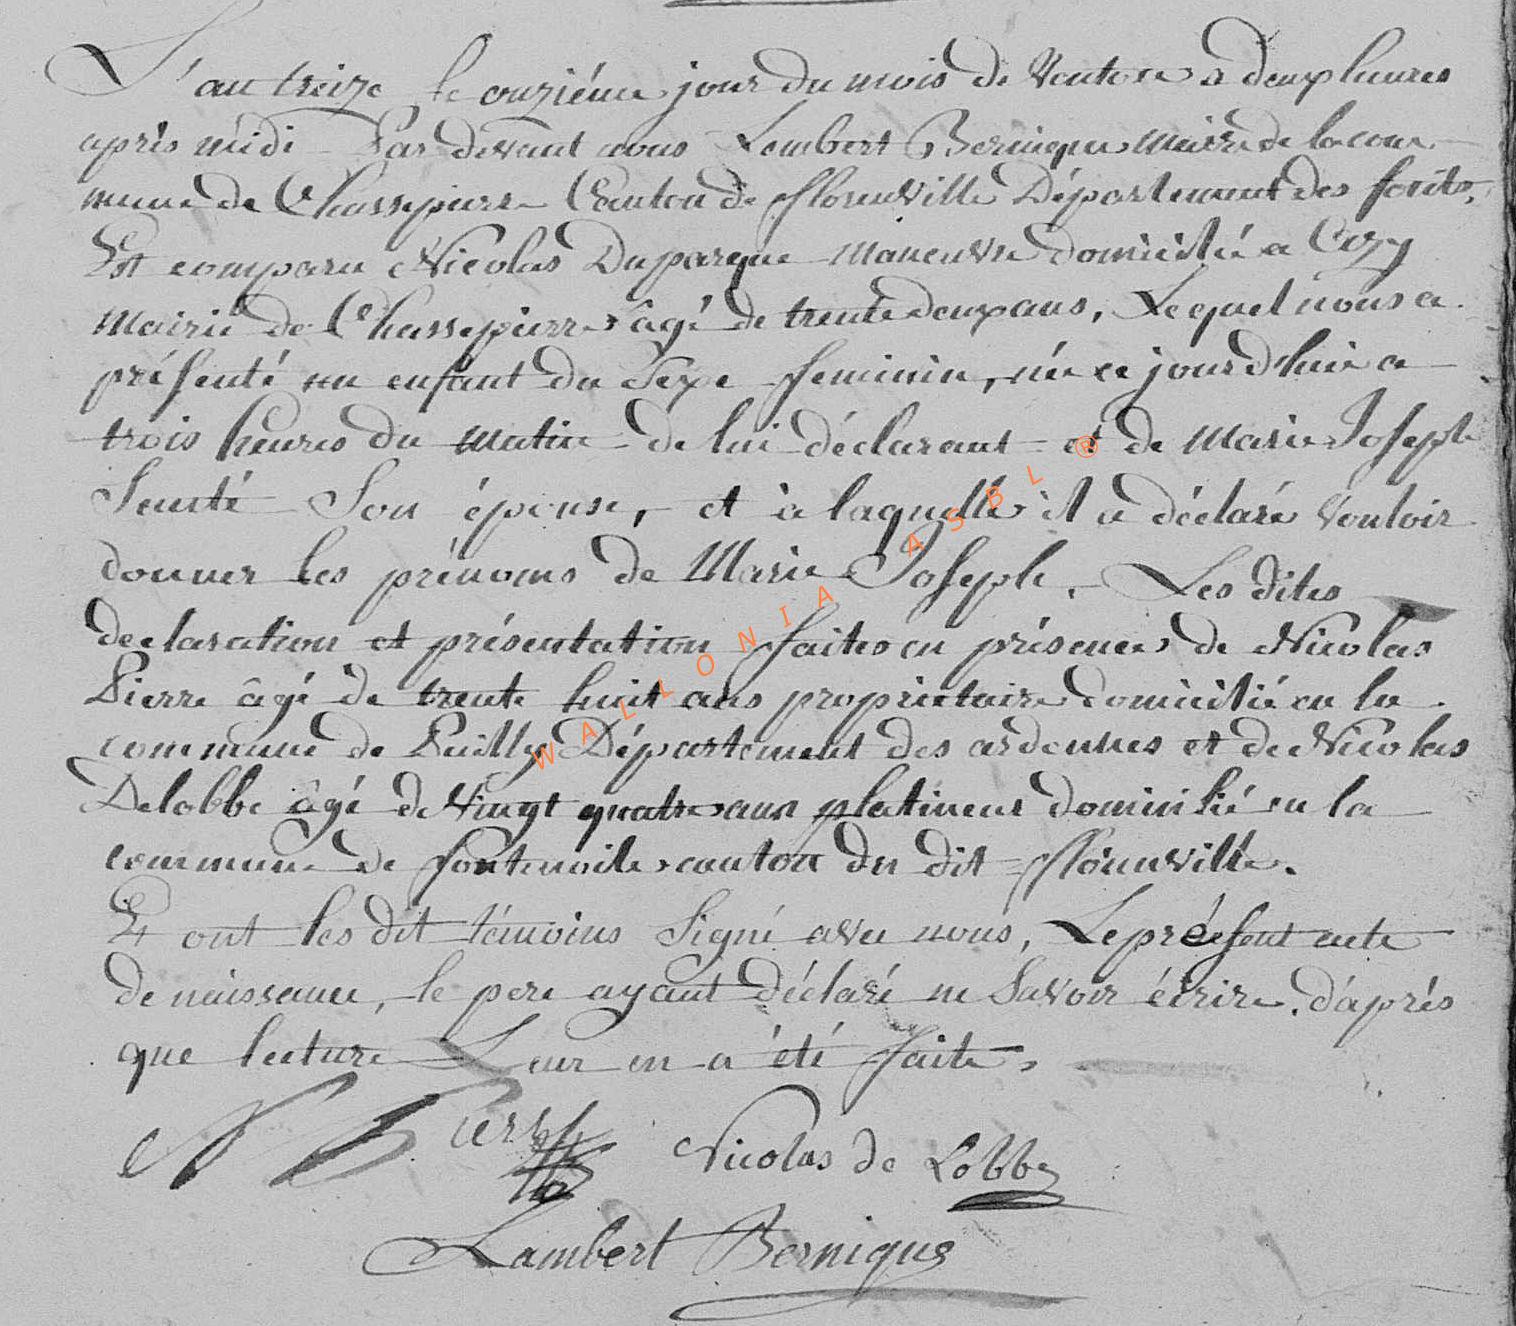 L'an treize le onziéme jour du mois de Ventose a deux heures
après midi Par devant nous Lambert Bernique Maire de la com-
mune de Chassepierre Canton de florenville Département des forêts,
Est comparu Nicolas Duparque Maneuvre domicilié a Azy
Mairie de Chassepierre âgé de trente deux ans, Lequel nous a
présenté un enfant du Sexe feminin, née ce jourd'hui a
trois heures du matin de lui déclarant et de Marie Joseph
Santé Son épouse, et à laquelle il a déclaré Vouloir
donner les prénoms de Marie Joseph. Les dites
declaration et présentation faites en présence de Nicolas
Pierre âgé de trente huit ans proprietaire domicilié en la
commune de Puilly Département des ardennes et de Nicolas
Delobbe âgé de Vingt quatre ans platineur domicilié en la
commune de fontenoile canton du dit florenville.
Et ont les dit témoins Signé avec nous, Le présent acte
de naissance, le pere ayant déclaré ne Savoir écrire. d'après
que lecture Leur en a été faite.
N Pierre Nicolas de Lobbe
Lambert Bernique
WALLONIA ASBL ®